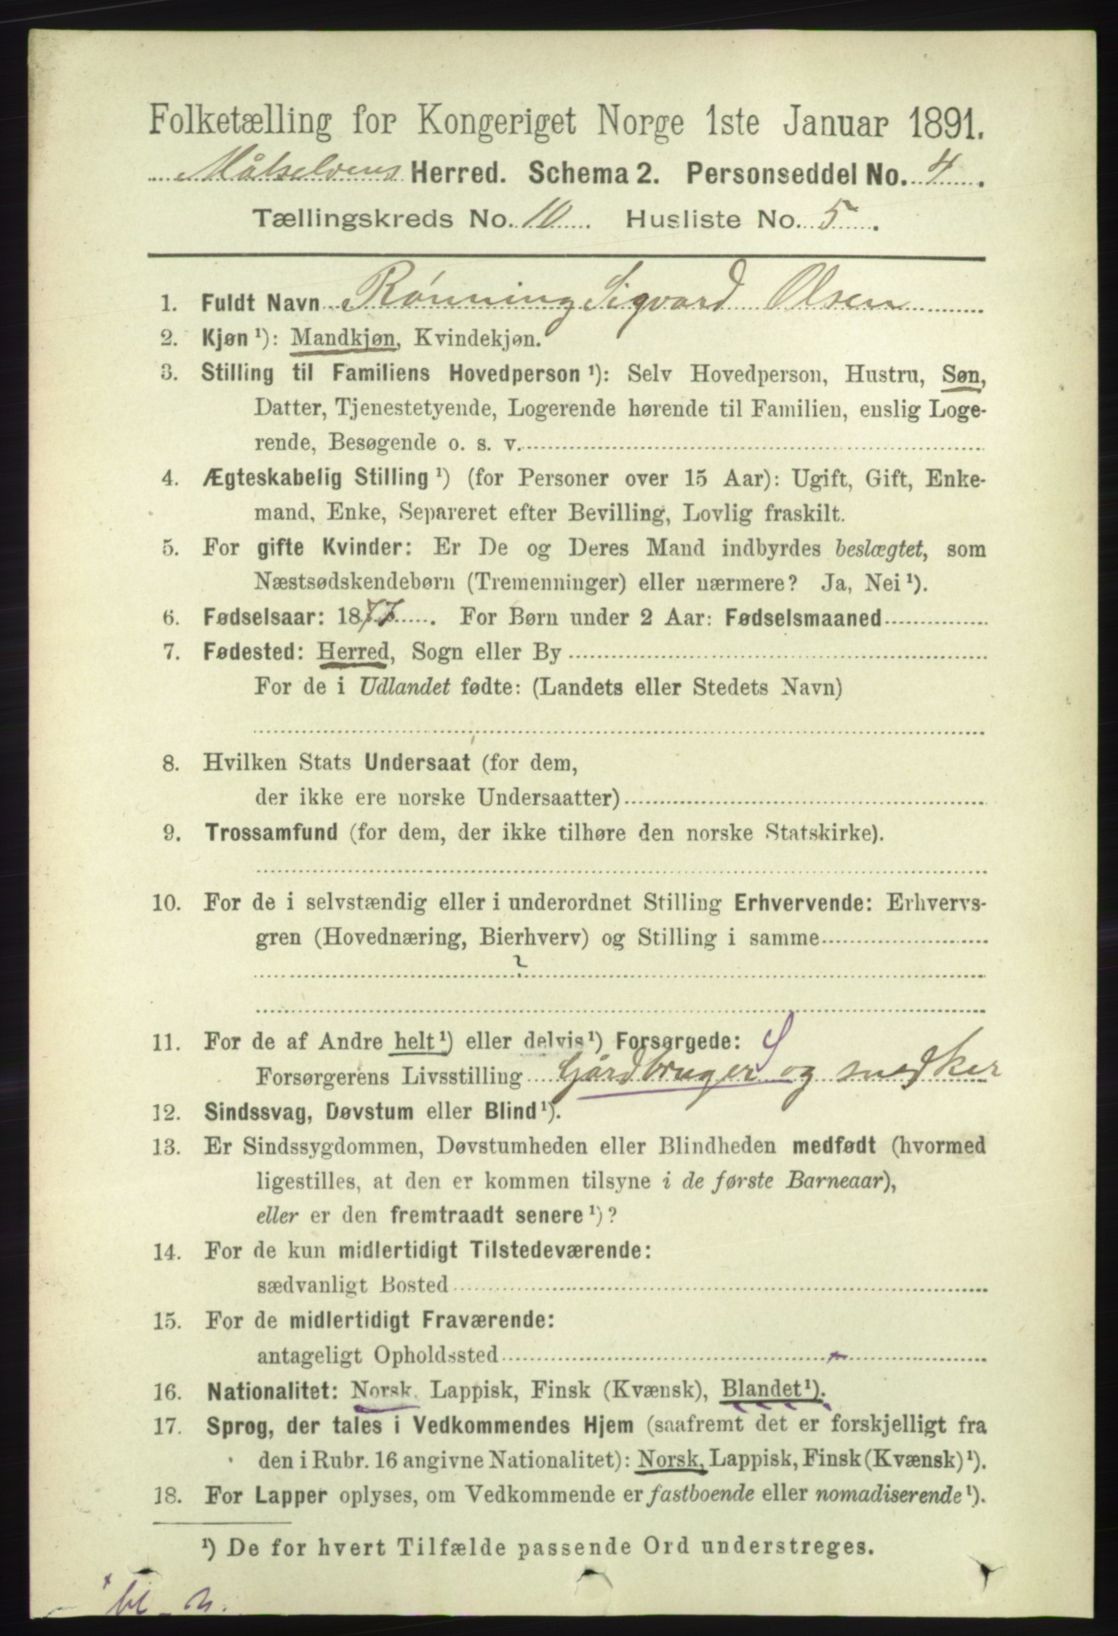 Folketælling for Kongeriget Norge 1ste Januar 1891.
Målselvens Herred. Schema 2. Personseddel No. 4.
Tællingskreds No. 10. Husliste No. 5.
1. Fuldt Navn Rönning Sigvard Olsen
2. Kjøn ¹): Mandkjøn, Kvindekjøn.
3. Stilling til Familiens Hovedperson ¹): Selv Hovedperson, Hustru, Søn,
Datter, Tjenestetyende, Logerende hørende til Familien, enslig Loge-
rende, Besøgende o. s. v.
4. Ægteskabelig Stilling ¹) (for Personer over 15 Aar): Ugift, Gift, Enke-
mand, Enke, Separeret efter Bevilling, Lovlig fraskilt.
5. For gifte Kvinder: Er De og Deres Mand indbyrdes beslægtet, som
Næstsødskendebørn (Tremenninger) eller nærmere? Ja, Nei ¹).
6. Fødselsaar: 1877. For Børn under 2 Aar: Fødselsmaaned
7. Fødested: Herred, Sogn eller By
For de i Udlandet fødte: (Landets eller Stedets Navn)
8. Hvilken Stats Undersaat (for dem,
der ikke ere norske Undersaatter)
9. Trossamfund (for dem, der ikke tilhøre den norske Statskirke).
10. For de i selvstændig eller i underordnet Stilling Erhvervende: Erhvervs-
gren (Hovednæring, Bierhverv) og Stilling i samme
?
11. For de af Andre helt ¹) eller delvis ¹) Forsørgede: S
Forsørgerens Livsstilling Gårdbruger og snedker
12. Sindssvag, Døvstum eller Blind ¹).
13. Er Sindssygdommen, Døvstumheden eller Blindheden medfødt (hvormed
ligestilles, at den er kommen tilsyne i de første Barneaar),
eller er den fremtraadt senere ¹)?
14. For de kun midlertidigt Tilstedeværende:
sædvanligt Bosted
15. For de midlertidigt Fraværende:
antageligt Opholdssted
16. Nationalitet: Norsk, Lappisk, Finsk (Kvænsk), Blandet ¹).
17. Sprog, der tales i Vedkommendes Hjem (saafremt det er forskjelligt fra
den i Rubr. 16 angivne Nationalitet): Norsk, Lappisk, Finsk (Kvænsk) ¹).
18. For Lapper oplyses, om Vedkommende er fastboende eller nomadiserende ¹).
¹) De for hvert Tilfælde passende Ord understreges.
bl_n.